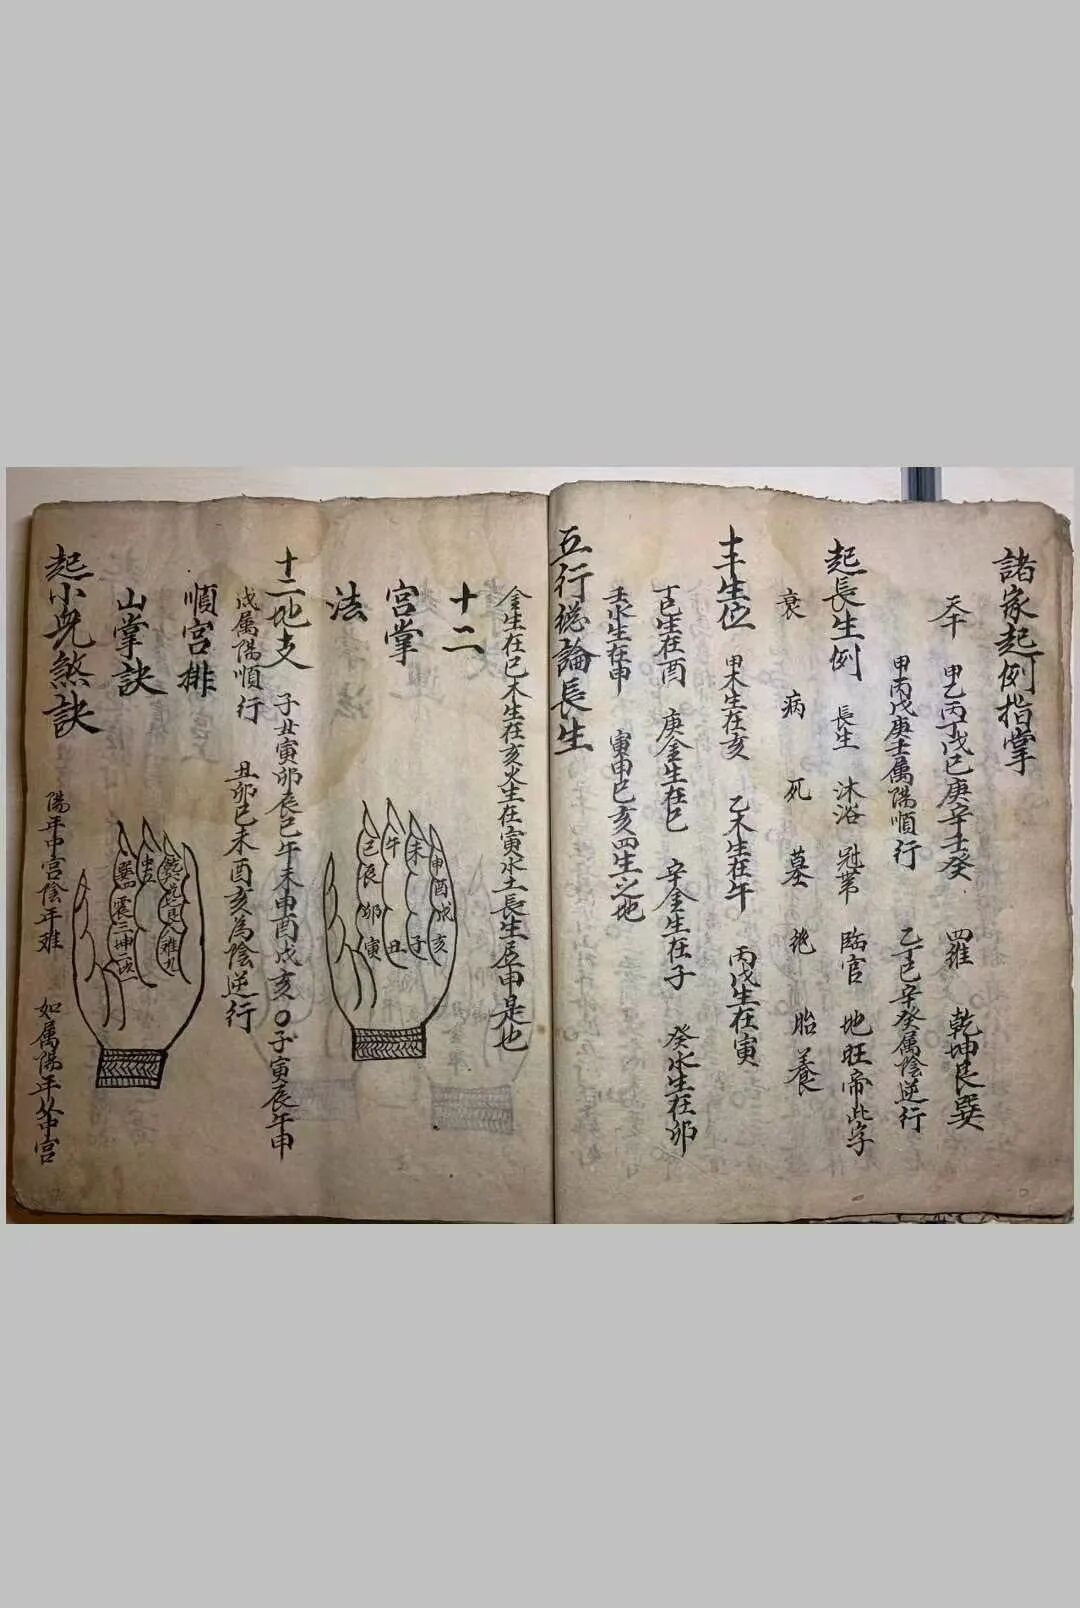 諸家起例指掌
天干 甲乙丙丁戊己庚辛壬癸 四維 乾坤艮巽
甲丙戊庚壬属陽順行 乙丁己辛癸属陰逆行
起長生例 長生 沐浴 冠帶 臨官 地旺帝此字
衰 病 死 墓 絶 胎 養
十干生位 甲木生在亥 乙木生在午 丙戊生在寅
丁己生在酉 庚金生在巳 辛金生在子 癸水生在卯
壬水生在申 寅申巳亥四生之地
五行總論長生
金生在巳木生在亥火生在寅水土長生居申是也
十二
宮掌
法
申酉戌亥
未子
午丑
巳辰卯寅
十二地支 子丑寅卯辰巳午未申酉戌亥〇子寅辰午申
戌属陽順行 丑卯巳未酉亥為陰逆行
順宮排
山掌訣
中五
巽四震三坤二
起小児煞訣 陽年中宮陰年难 如属陽年中宮